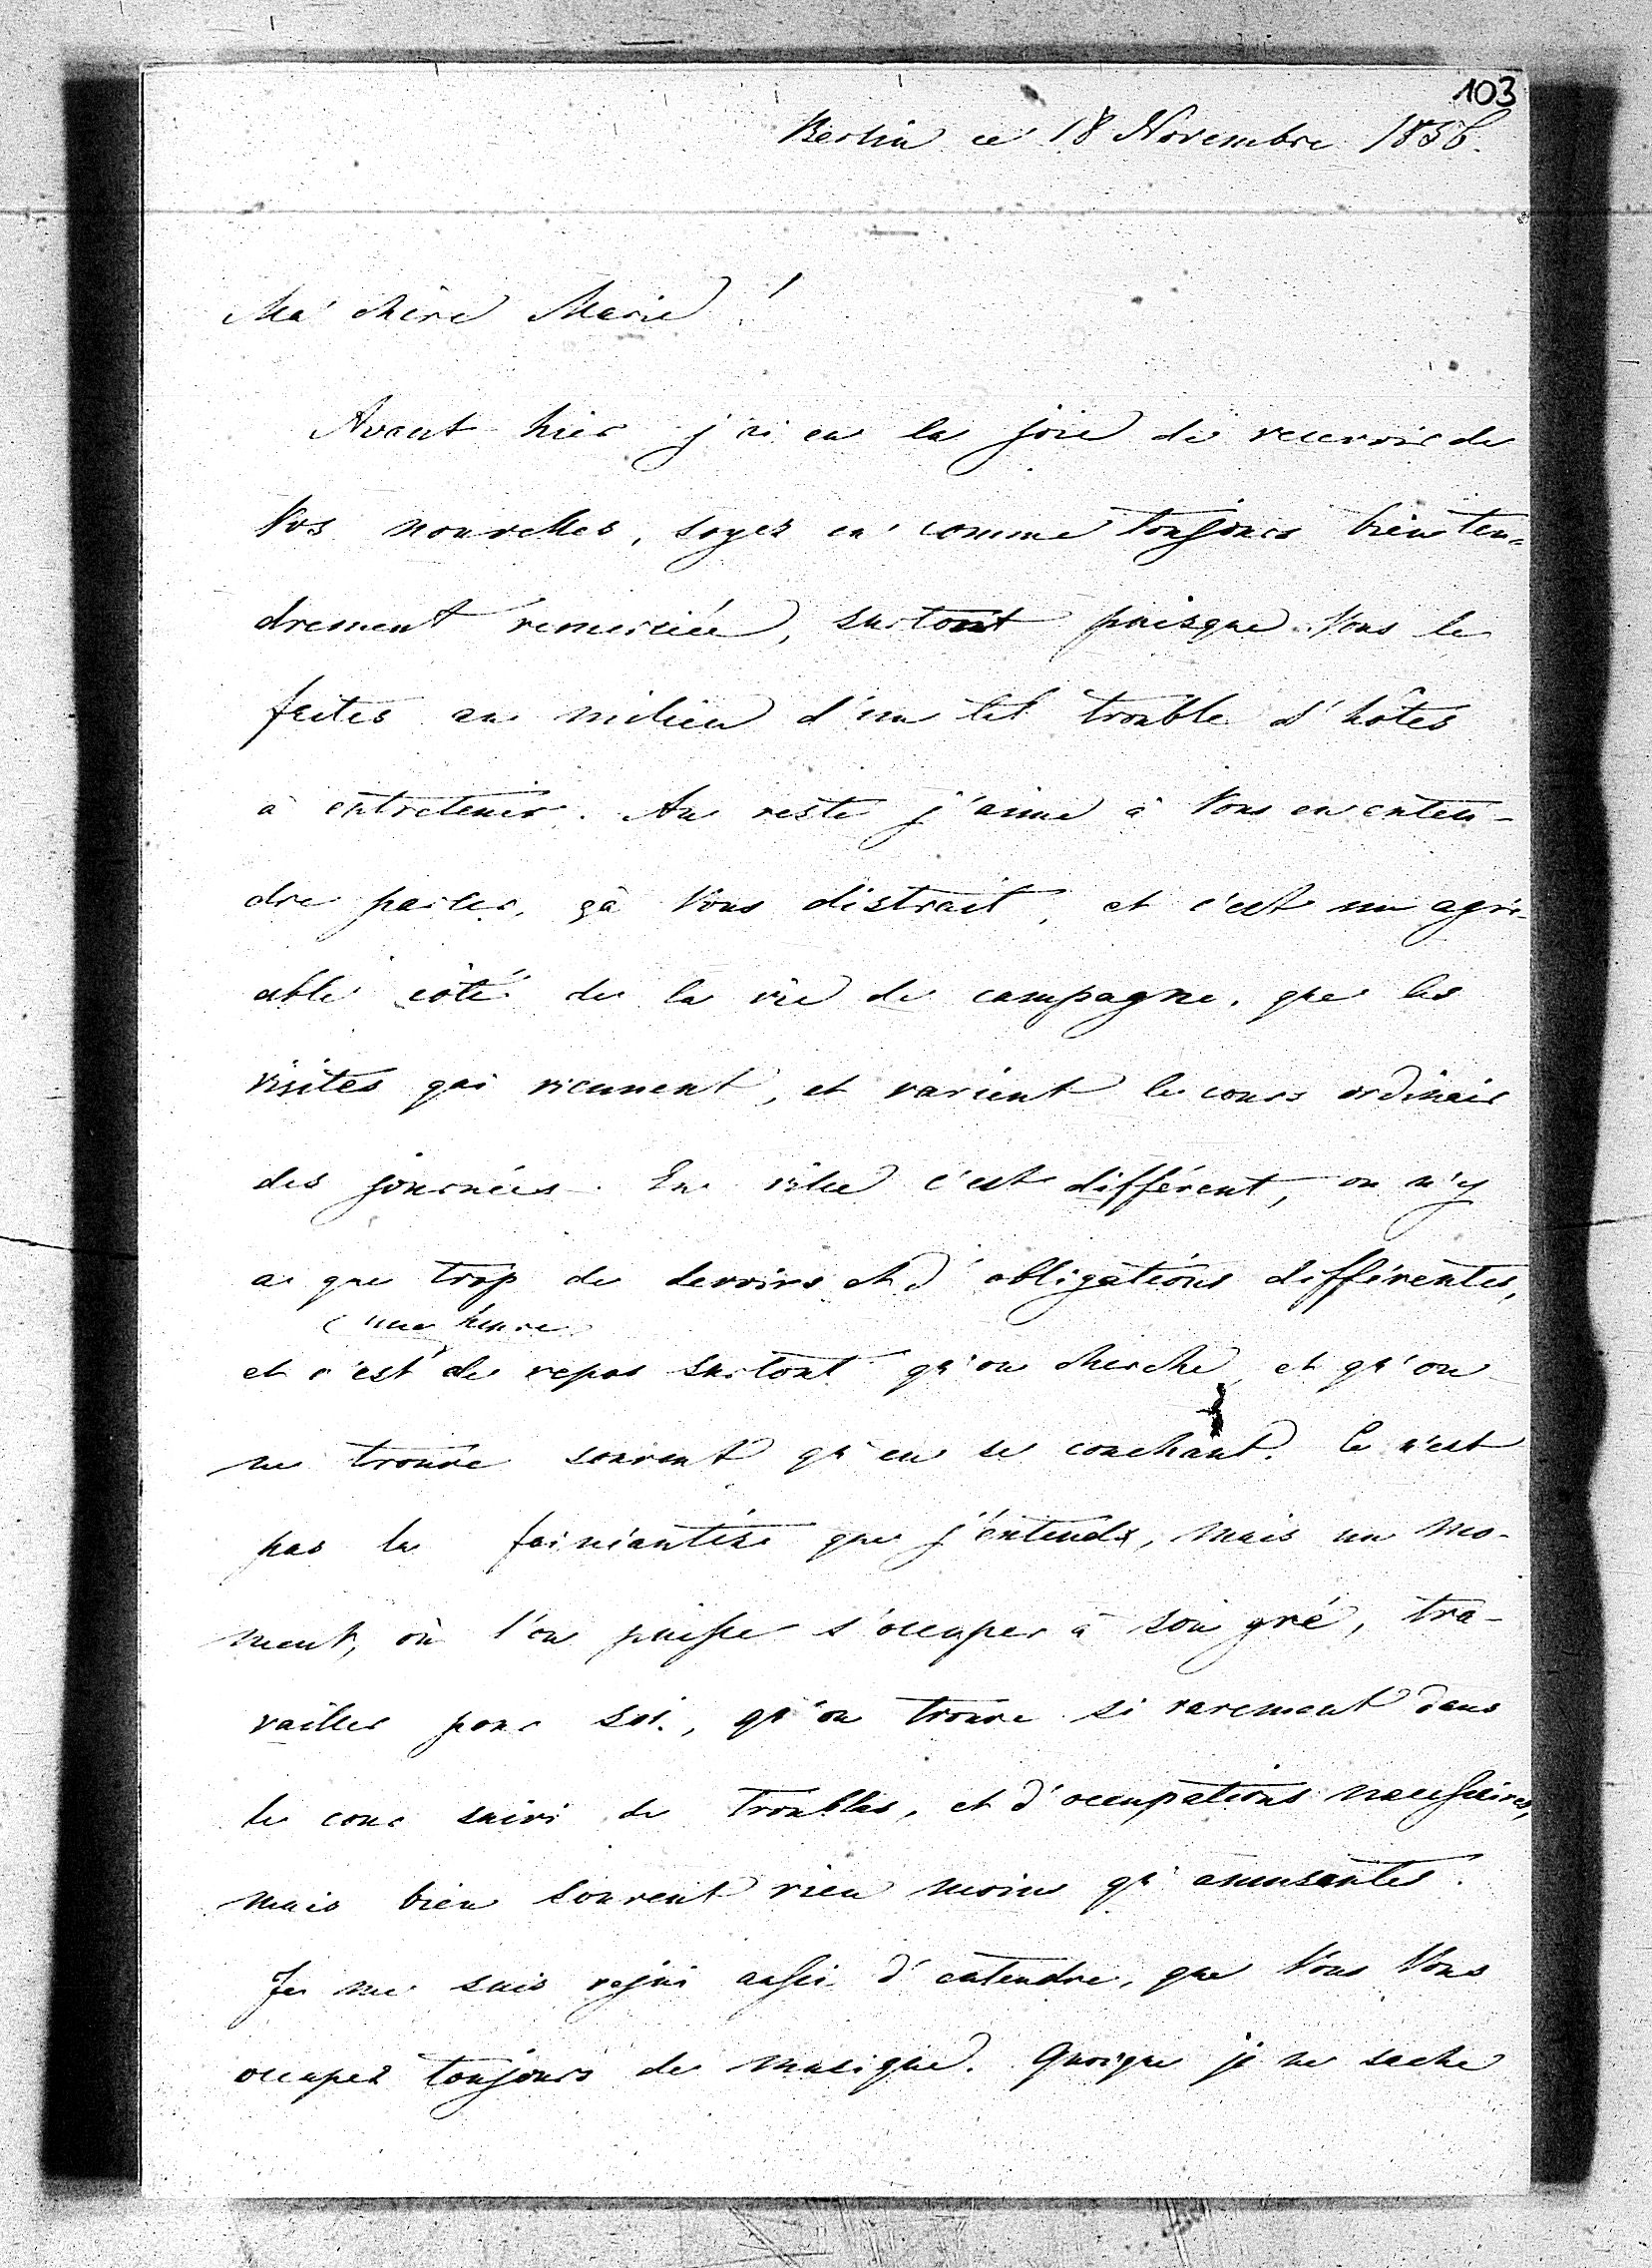 103
Berlin ce 18 Novembre 1856.
Ma chère Marie!
Avant hier j'ai eu la joie de recevoir de
Vos nouvelles, soyez en comme toujours bien ten=
drement remerciée, surtout puisque Vous le
faites au milieu d'un tel trouble d'hôtes
à entretenir. Au reste j'aime à Vous en enten-
dre parler, çà Vous distrait, et c'est un agré-
able côté de la vie de campagne, que les
visites qui viennent, et varient le cours ordinair
des journées. En ville c'est différent, on n'y
a que trop de devoirs et d'obligations différentes,
une heure
et c'est de repos surtout qu'on cherche, et qu'on
ne trouve souvent qu'en se couchant. Ce n'est
pas la fainéantise que j'entends, mais un mo-
ment, où l'on puisse s'occuper à son gré, tra-
vailler pour soi, qu'on trouve si rarement dans
le cour suivi de troubles, et d'occupations necessaires,
mais bien souvent rien moins qu'amusantes.
Je me suis rejoui aussi d'entendre, que Vous Vous
occupez toujours de musique. Quoique je ne sache